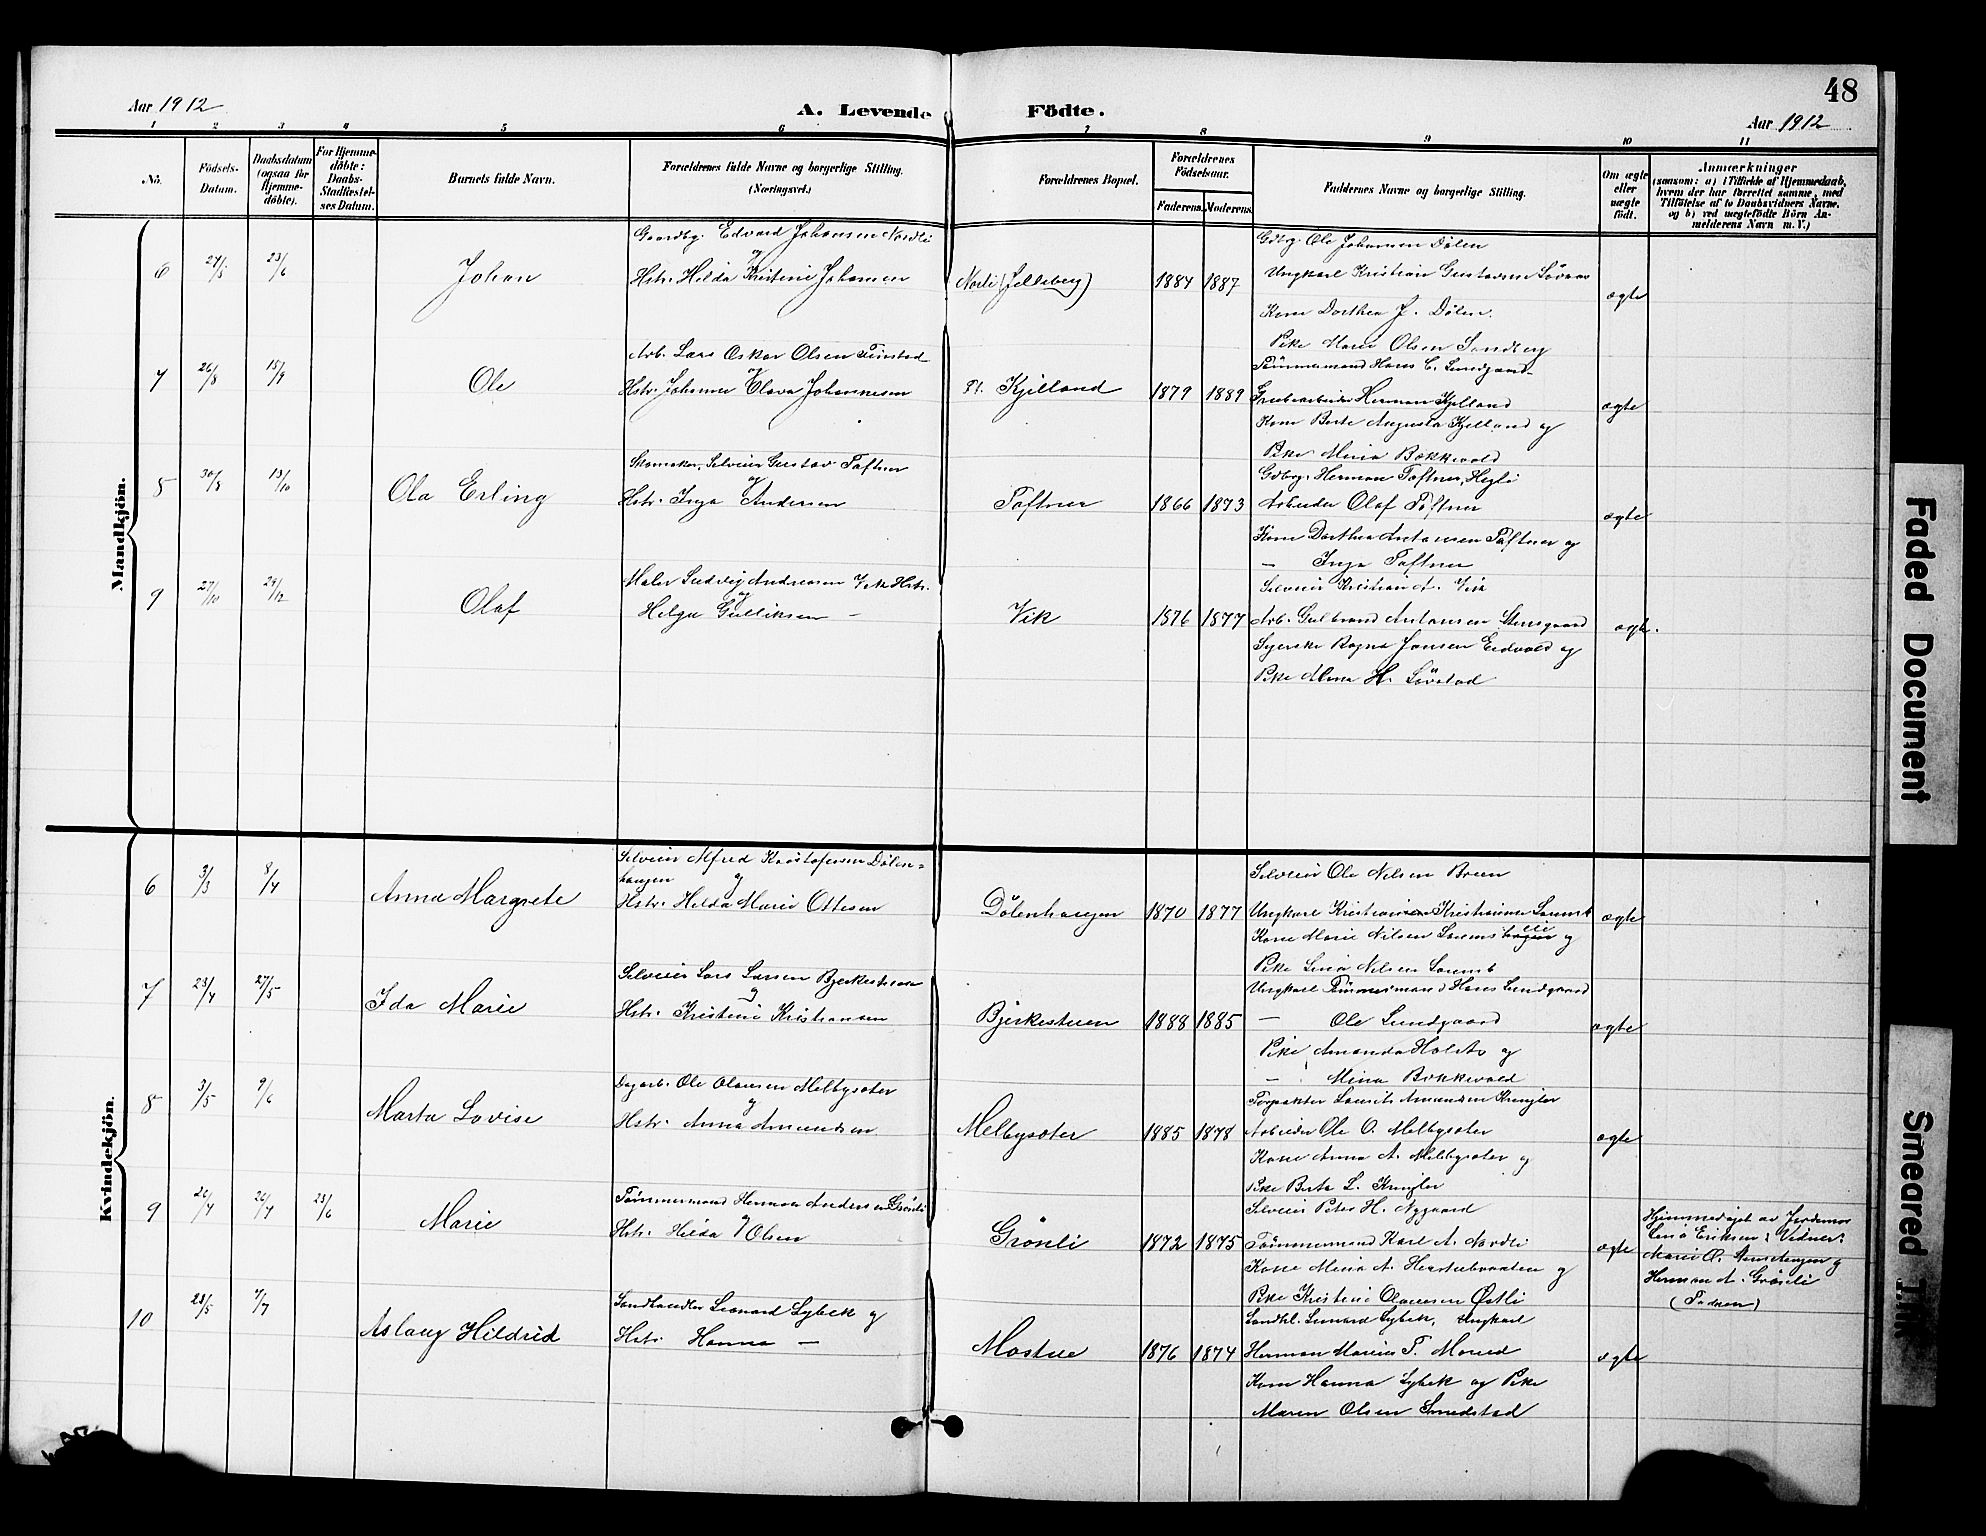 48
Aar 1912
A. Levende Födte.
Aar 1912
1 2 3 4 5 6 7 8 9 10 11
No.
Födsels-Datum.
Daabsdatum (ogsaa for Hjemme-döbte).
For Hjemme-döbte: Daabs-Stadfæstel-ses Datum.
Barnets fulde Navn.
Forældrenes fulde Navne og borgerlige Stilling.
(Næringsvei.)
Forældrenes Bopæl.
Forældrenes Födselsaar.
Faderens. Moderens.
Faddernes Navne og borgerlige Stilling.
Om ægte eller uægte födt.
Anmærkninger
(saasom: a) i Tilfælde af Hjemmedaab,
hvem der har forrettet samme, med
Tilföielse af to Daabsvidners Navne.
og b) ved uægtefödte Börn An-
melderens Navn m. V.)
Mandkjön.
6 24/5 23/6 Johan
Gaardbg. Edvard Johansen Nordli
og
Hstr. Hilda Kristine Johansen
Norli (Jelleberg) 1884 1887
Gdbrg. Ole Johansen Dölen
Ungkarl Kristian Gustavsen
Kone Dorthea J. Dölen.
Pike Marie Olsen Sandberg
ægte
7 26/8 15/9 Ole
Arb. Lars Oskar Olsen
og
Hstr. Johanna Olava Johannesen
Pt. Kjelland 1879 1889
Tömmermand Hans C. Lundgaard
Herman Kjelland
Kone Berte Augusta Kjelland og
Pike Mina Bækkevold
ægte
8 30/8 13/10 Ola Erling
Skomaker, Selveier Gustav Taftner
og
Hstr. Inga Andersen
Taftner 1866 1873
Gdbrg. Herman Taftner, Hegli
Arbeider Olaf Taftner
Kone Dorthea Antonsen Taftner og
— Inga Taftner
ægte
9 27/10 29/12 Olaf
Maler Ludvig Andreasen Vik Hstr.
og
Helga Gulliksen —
Vik 1876 1877
Selveier Kristian A. Vik
Arb. Gulbrand Antonsen Stensgaard
Syerske Ragna Jansen Eidvold og
Pike Anna H. Lövstad
ægte.
Kvindekjön.
6 3/3 8/4 Anna Margrete
Selveier Alfred Kristofersen Dölen-
haugen og
Hstr. Hilda Marie Ottesen
Dölenhaugen 1870 1877
Selveier Ole Nilsen Breen
Ungkarl Kristian Kristiansen
Kone Marie Nilsen og
Pike Lina Nilsen
ægte
7 23/4 27/5 Ida Marie
Selveier Lars Larsen Bjerkestuen
og
Hstr. Kristine Kristiansen
Bjerkestuen 1888 1885
Ungkarl Tömmermand Hans Lundgaard
— Ole Lundgaard
Pike Amanda Holsto og
— Mina Bækkevold
ægte
8 3/5 9/6 Marta Lovise
Dagarb. Ole Olausen Melbysæter
og
Hstr. Anna Amundsen
Melbysæter 1885 1878
Forpakter Laurits Amundsen Kringler
Arbeider Ole O. Melbysæter
Kone Anna A. Melbysæter og
Pike Berta L. Kringler
ægte
9 26/4 26/4 23/6 Marie
Tömmermand Herman Andersen Grönli
og
Hstr. Hilda Olsen
Grönli 1872 1875
Selveier Peter H. Nygaard
Tömmermand Karl A. Nordli
Kone Mina A. og
Pike Kristine Olausen Østli
ægte
Hjemmedöpt av Jordemor
Lina Eriksen; Vidner:
Marie O. og
Herman A. Grönli
(Faderen)
10 28/5 7/7 Aslaug Hildrid
Landhandler Leonard Lybek og
Hstr. Hanna —
Mostue 1876 1874
Landhl. Leonard Lybek, Ungkarl
Herman Marius T. Morud
Kone Hanna Lybek og Pike
Maren Olsen Smedstad
ægte
Faded Document
Smeared Ink